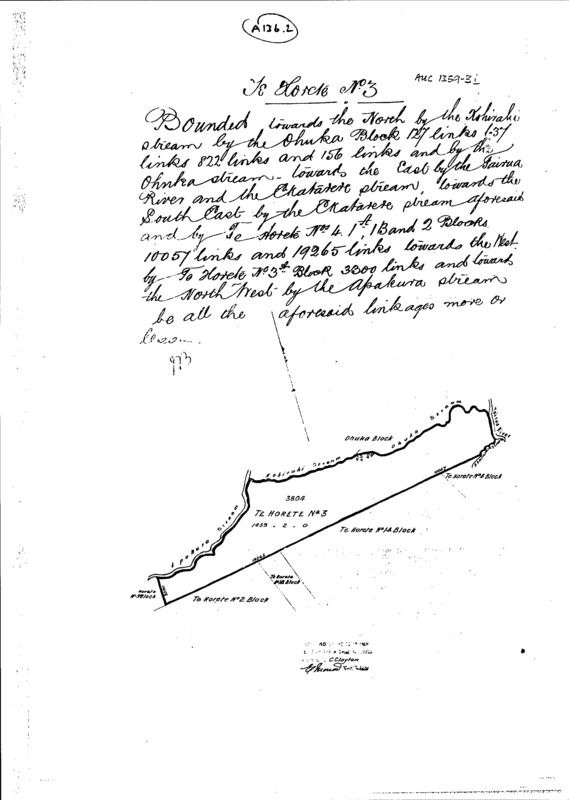 A136.2
AUC 1359-31
Te Horete No 3
Bounded towards the North by the Kohiraki
stream by the Ohuka Block 127 links 137
links 822 links and 156 links and by the
Ohuka stream - towards the East by the Tairua
River and the Ekatarere stream, towards the
South East by the Ekatarere stream aforesaid
and by Te Horete Nos 4, 1A, 1B and 2 Blocks
10057 links and 19265 links towards the West
by Te Horete No 3 Block 3300 links and towards
the North West by the Apakura stream
be all the aforesaid linkages more or
less.
Ohuka Block
Ohuka Stream
Kohiraki Stream
Tairua River
Te Horete No 4 Block
3804
Te Horete No 3
1955 . 2 . 0
Te Horete No 1A Block
Apakura Stream
Te Horete
No 1B Block
Horete
Block
Te Horete No 2 Block
C Clayton